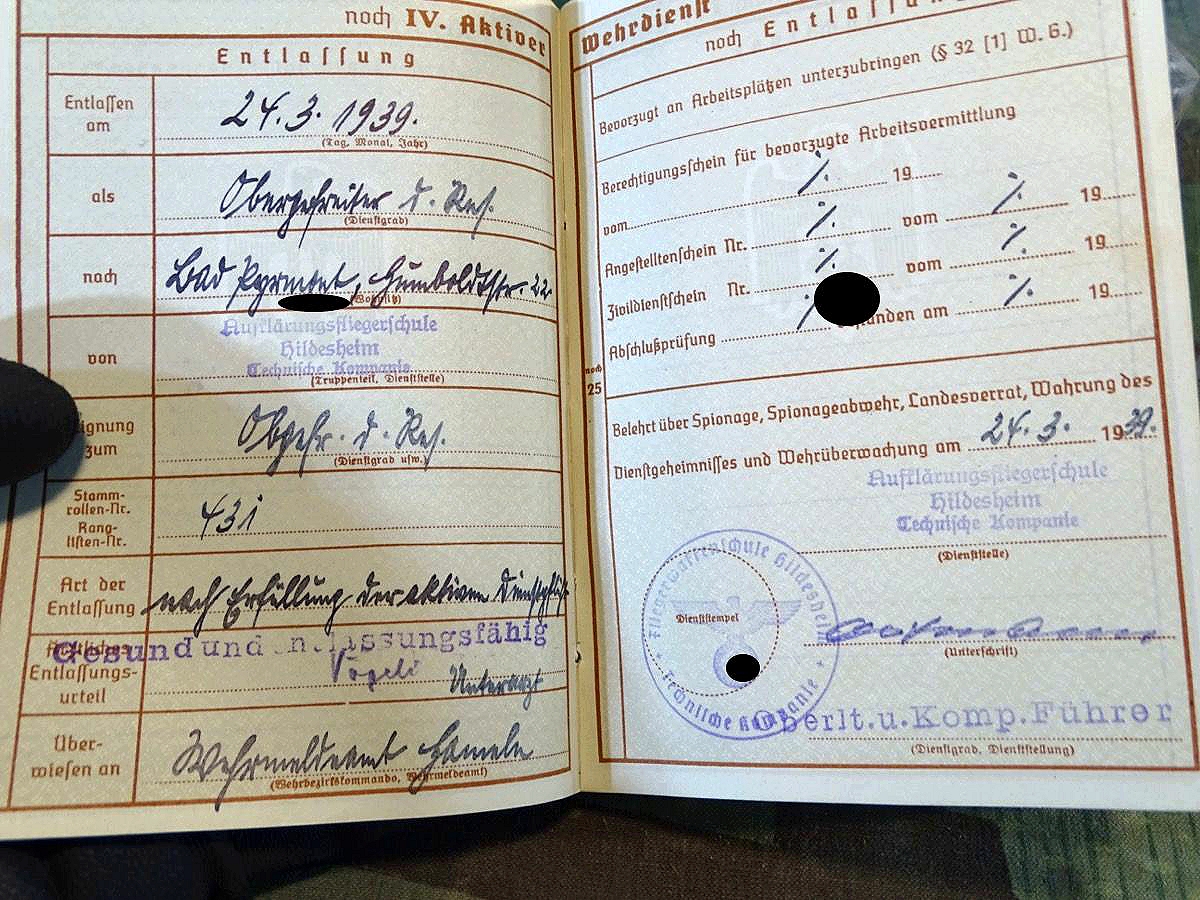 noch IV. Aktiver
Entlassung
Entlassen am
24.3.1939.
(Tag, Monat, Jahr)
als
Obergefreiter d. Res.
(Dienstgrad)
nach
Bad Pyrmont, Humboldtstr. 22
von
Aufklärungsfliegerschule
Hildesheim
Technische Kompanie
(Truppenteil, Dienststelle)
Eignung zum
Obgefr. d. Res.
(Dienstgrad usw.)
Stamm-
rollen-Nr.
Rang-
listen-Nr.
431
Art der
Entlassung
nach Erfüllung der aktiven Dienstpflicht
Gesund und entlassungsfähig
Entlassungs-
urteil
Unterarzt
Über-
wiesen an
Wehrmeldeamt Hameln
(Wehrbezirkskommando, Wehrmeldeamt)
Wehrdienst
noch Entlassung
Bevorzugt an Arbeitsplätzen unterzubringen (§ 32 [1] W. G.)
Berechtigungsschein für bevorzugte Arbeitsvermittlung
vom ./. 19
Angestelltenschein Nr. ./. vom ./. 19
Zivildienstschein Nr. ./. vom ./. 19
Abschlußprüfung ./. am ./. 19
noch
25
Belehrt über Spionage, Spionageabwehr, Landesverrat, Wahrung des
Dienstgeheimnisses und Wehrüberwachung am 24.3. 1939.
Aufklärungsfliegerschule
Hildesheim
Technische Kompanie
(Dienststelle)
Fliegerwaffenschule Hildesheim
Technische Kompanie
Dienststempel
(Unterschrift)
Oberlt.u.Komp.Führer
(Dienstgrad, Dienststellung)